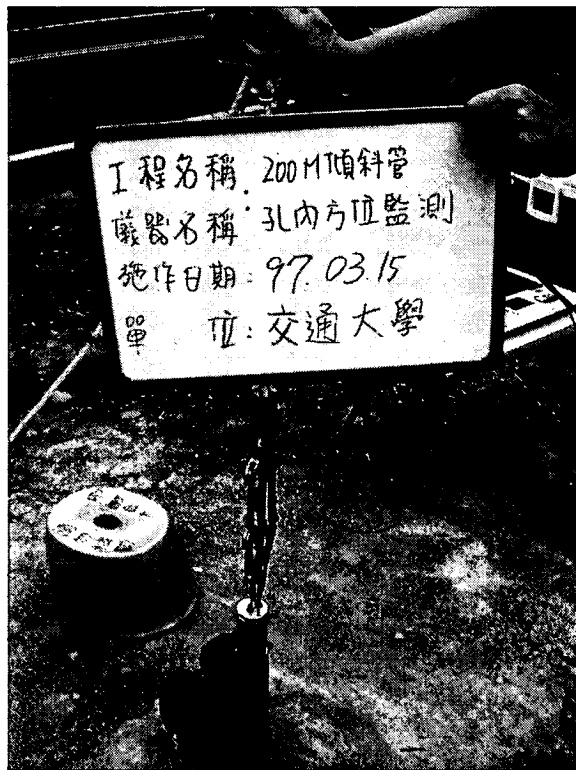 工程名稱: 200M傾斜管
儀器名稱: 孔內方位監測
施作日期: 97.03.15
單 位: 交通大學